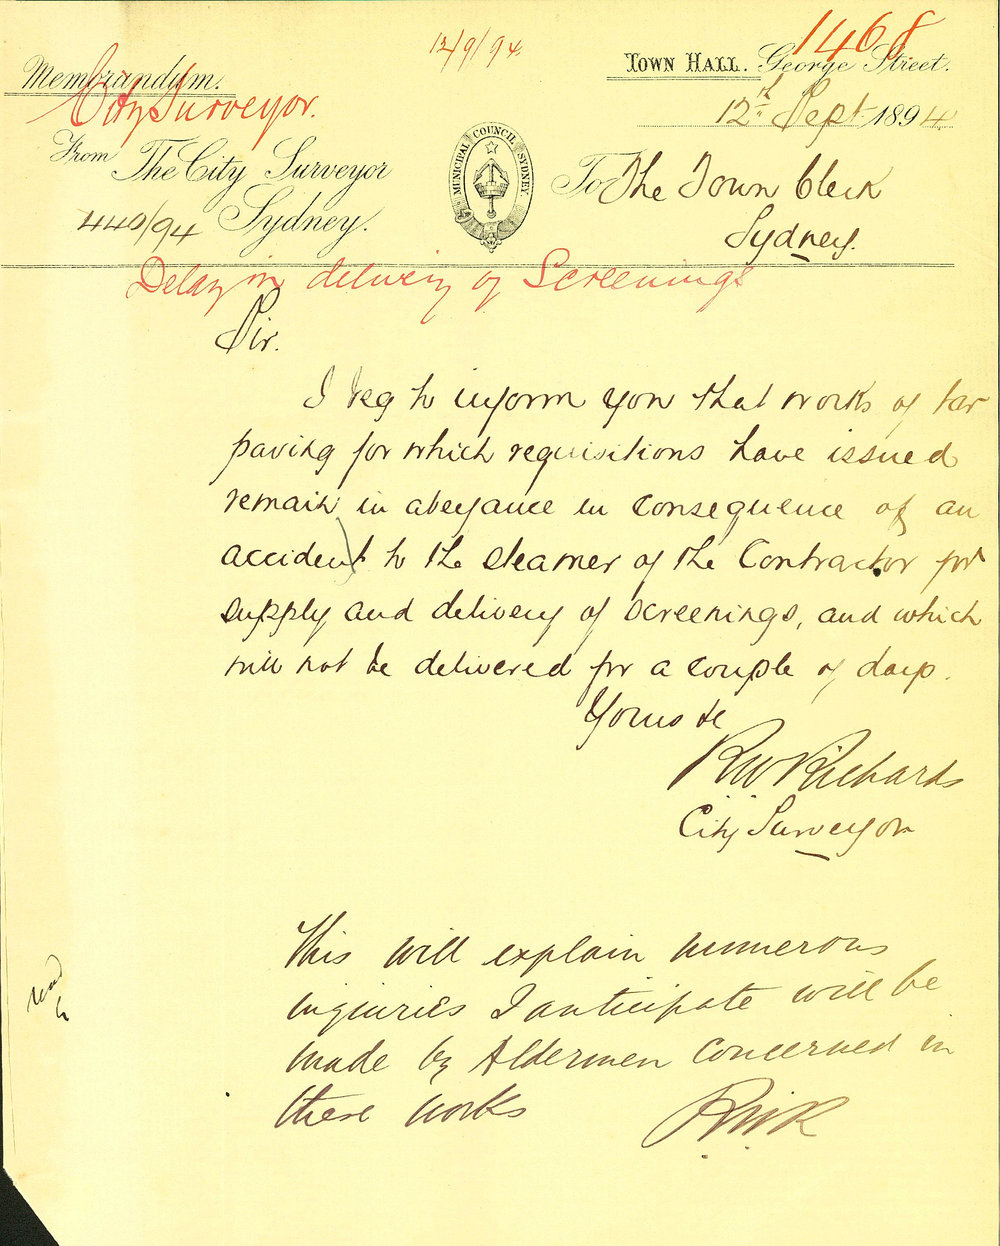 12/9/94
1468
Memorandum.
City Surveyor.
TOWN HALL. George Street.
12th Sept. 1894
From The City Surveyor
440/94 Sydney.
MUNICIPAL COUNCIL SYDNEY
To The Town Clerk
Sydney.
Delay in delivery of Screenings
Sir.
I beg to inform you that works of tar
paving for which requisitions have issued
remain in abeyance in consequence of an
accident to the steamer of the Contractor for
supply and delivery of screenings, and which
will not be delivered for a couple of days.
Yours &c
RW Richards
City Surveyor
This will explain numerous
inquiries I anticipate will be
made by Aldermen concerned in
these works
RWR